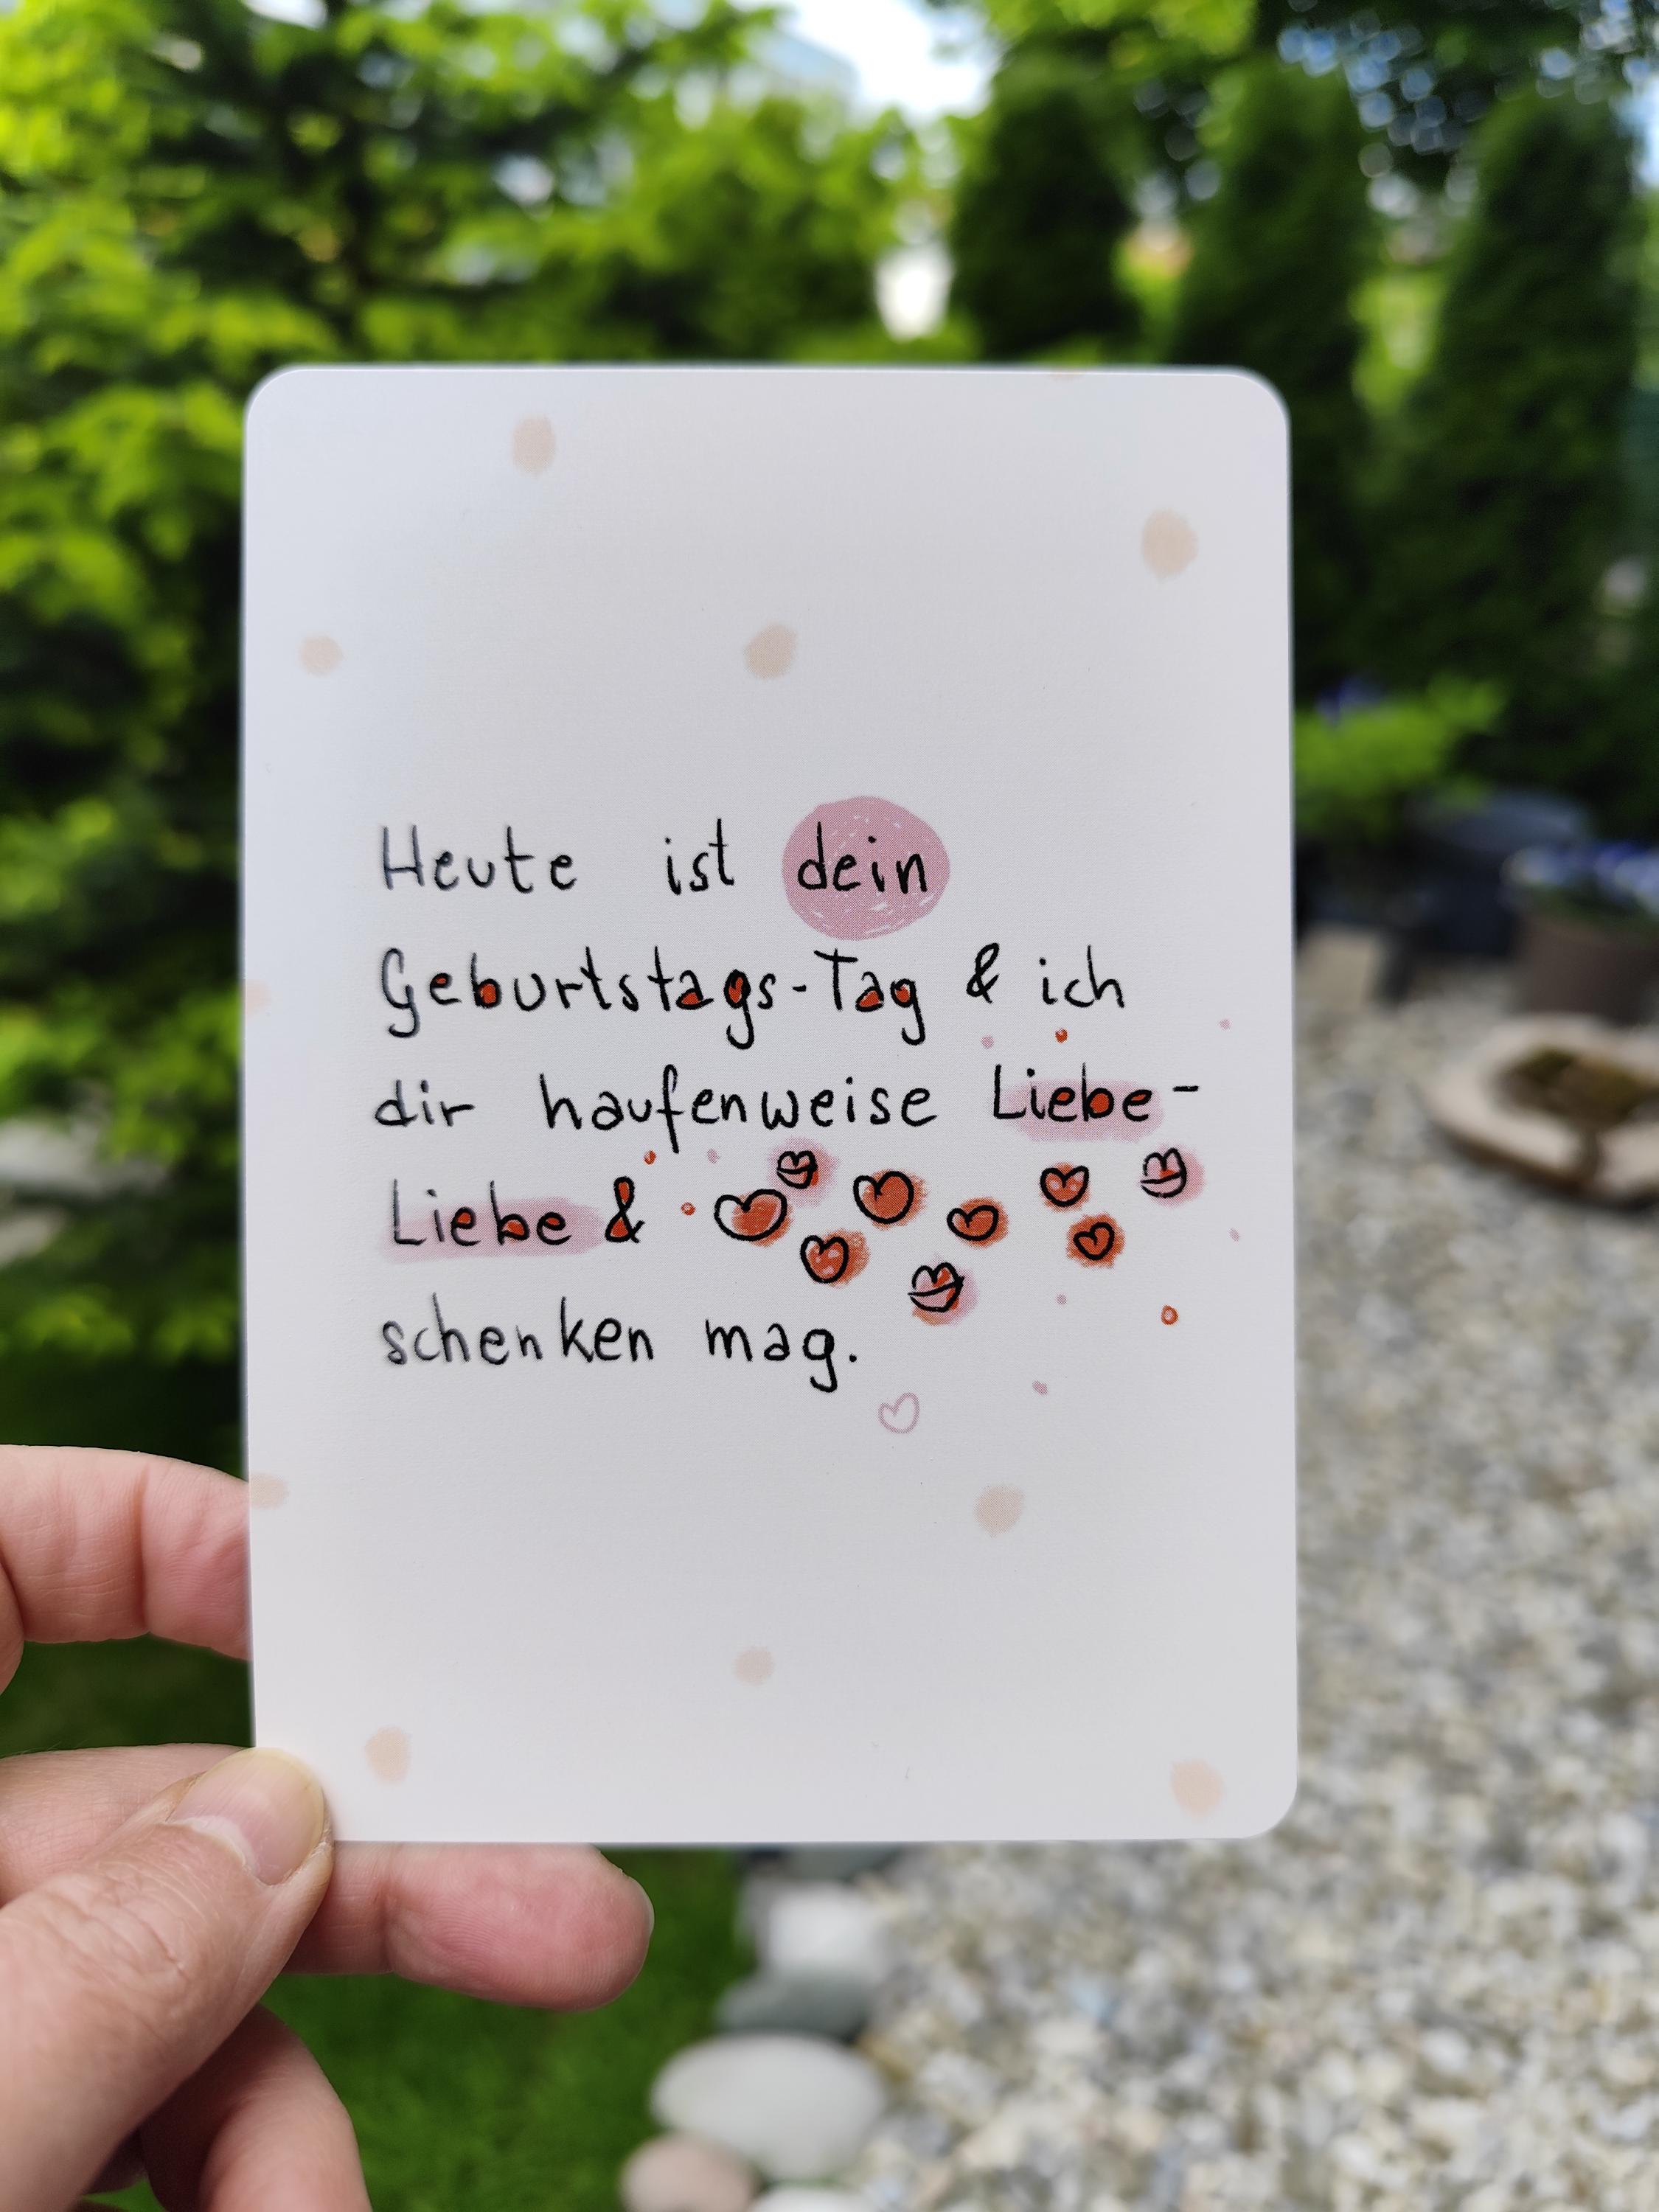 Heute ist dein
Geburtstags-Tag & ich
dir haufenweise Liebe-
Liebe &
schenken mag.